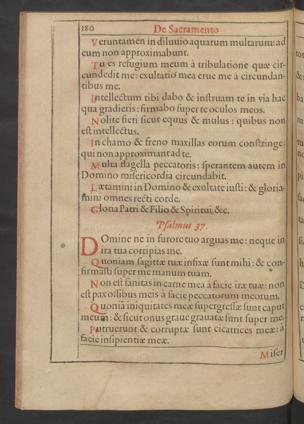 180 De Sacramento
Veruntamen in diluvio aquarum multarum: ad
eum non approximabunt.
Tu es refugium meum à tribulatione quæ cir-
cundedit me: exultatio mea erue me à circundan-
tibus me.
Intellectum tibi dabo & instruam te in via hac
qua gradieris: firmabo super te oculos meos.
Nolite fieri sicut equus & mulus: quibus non
est intellectus.
In chamo & freno maxillas eorum constringe:
qui non approximant ad te.
Multa flagella peccatoris: sperantem autem in
Domino misericordia circundabit.
Lætamini in Domino & exultate iusti: & gloria-
mini omnes recti corde.
Gloria Patri & Filio & Spiritui, &c.
Psalmus 37.
Domine ne in furore tuo arguas me: neque in
ira tua corripias me.
Quoniam sagittæ tuæ infixæ sunt mihi: & con-
firmasti super me manum tuam.
Non est sanitas in carne mea à facie iræ tuæ: non
est pax ossibus meis à facie peccatorum meorum.
Quoniã iniquitates meæ supergressæ sunt caput
meum: & sicut onus graue grauatæ sunt super me.
Putruerunt & corruptæ sunt cicatrices meæ: à
facie insipientiæ meæ.
Miser